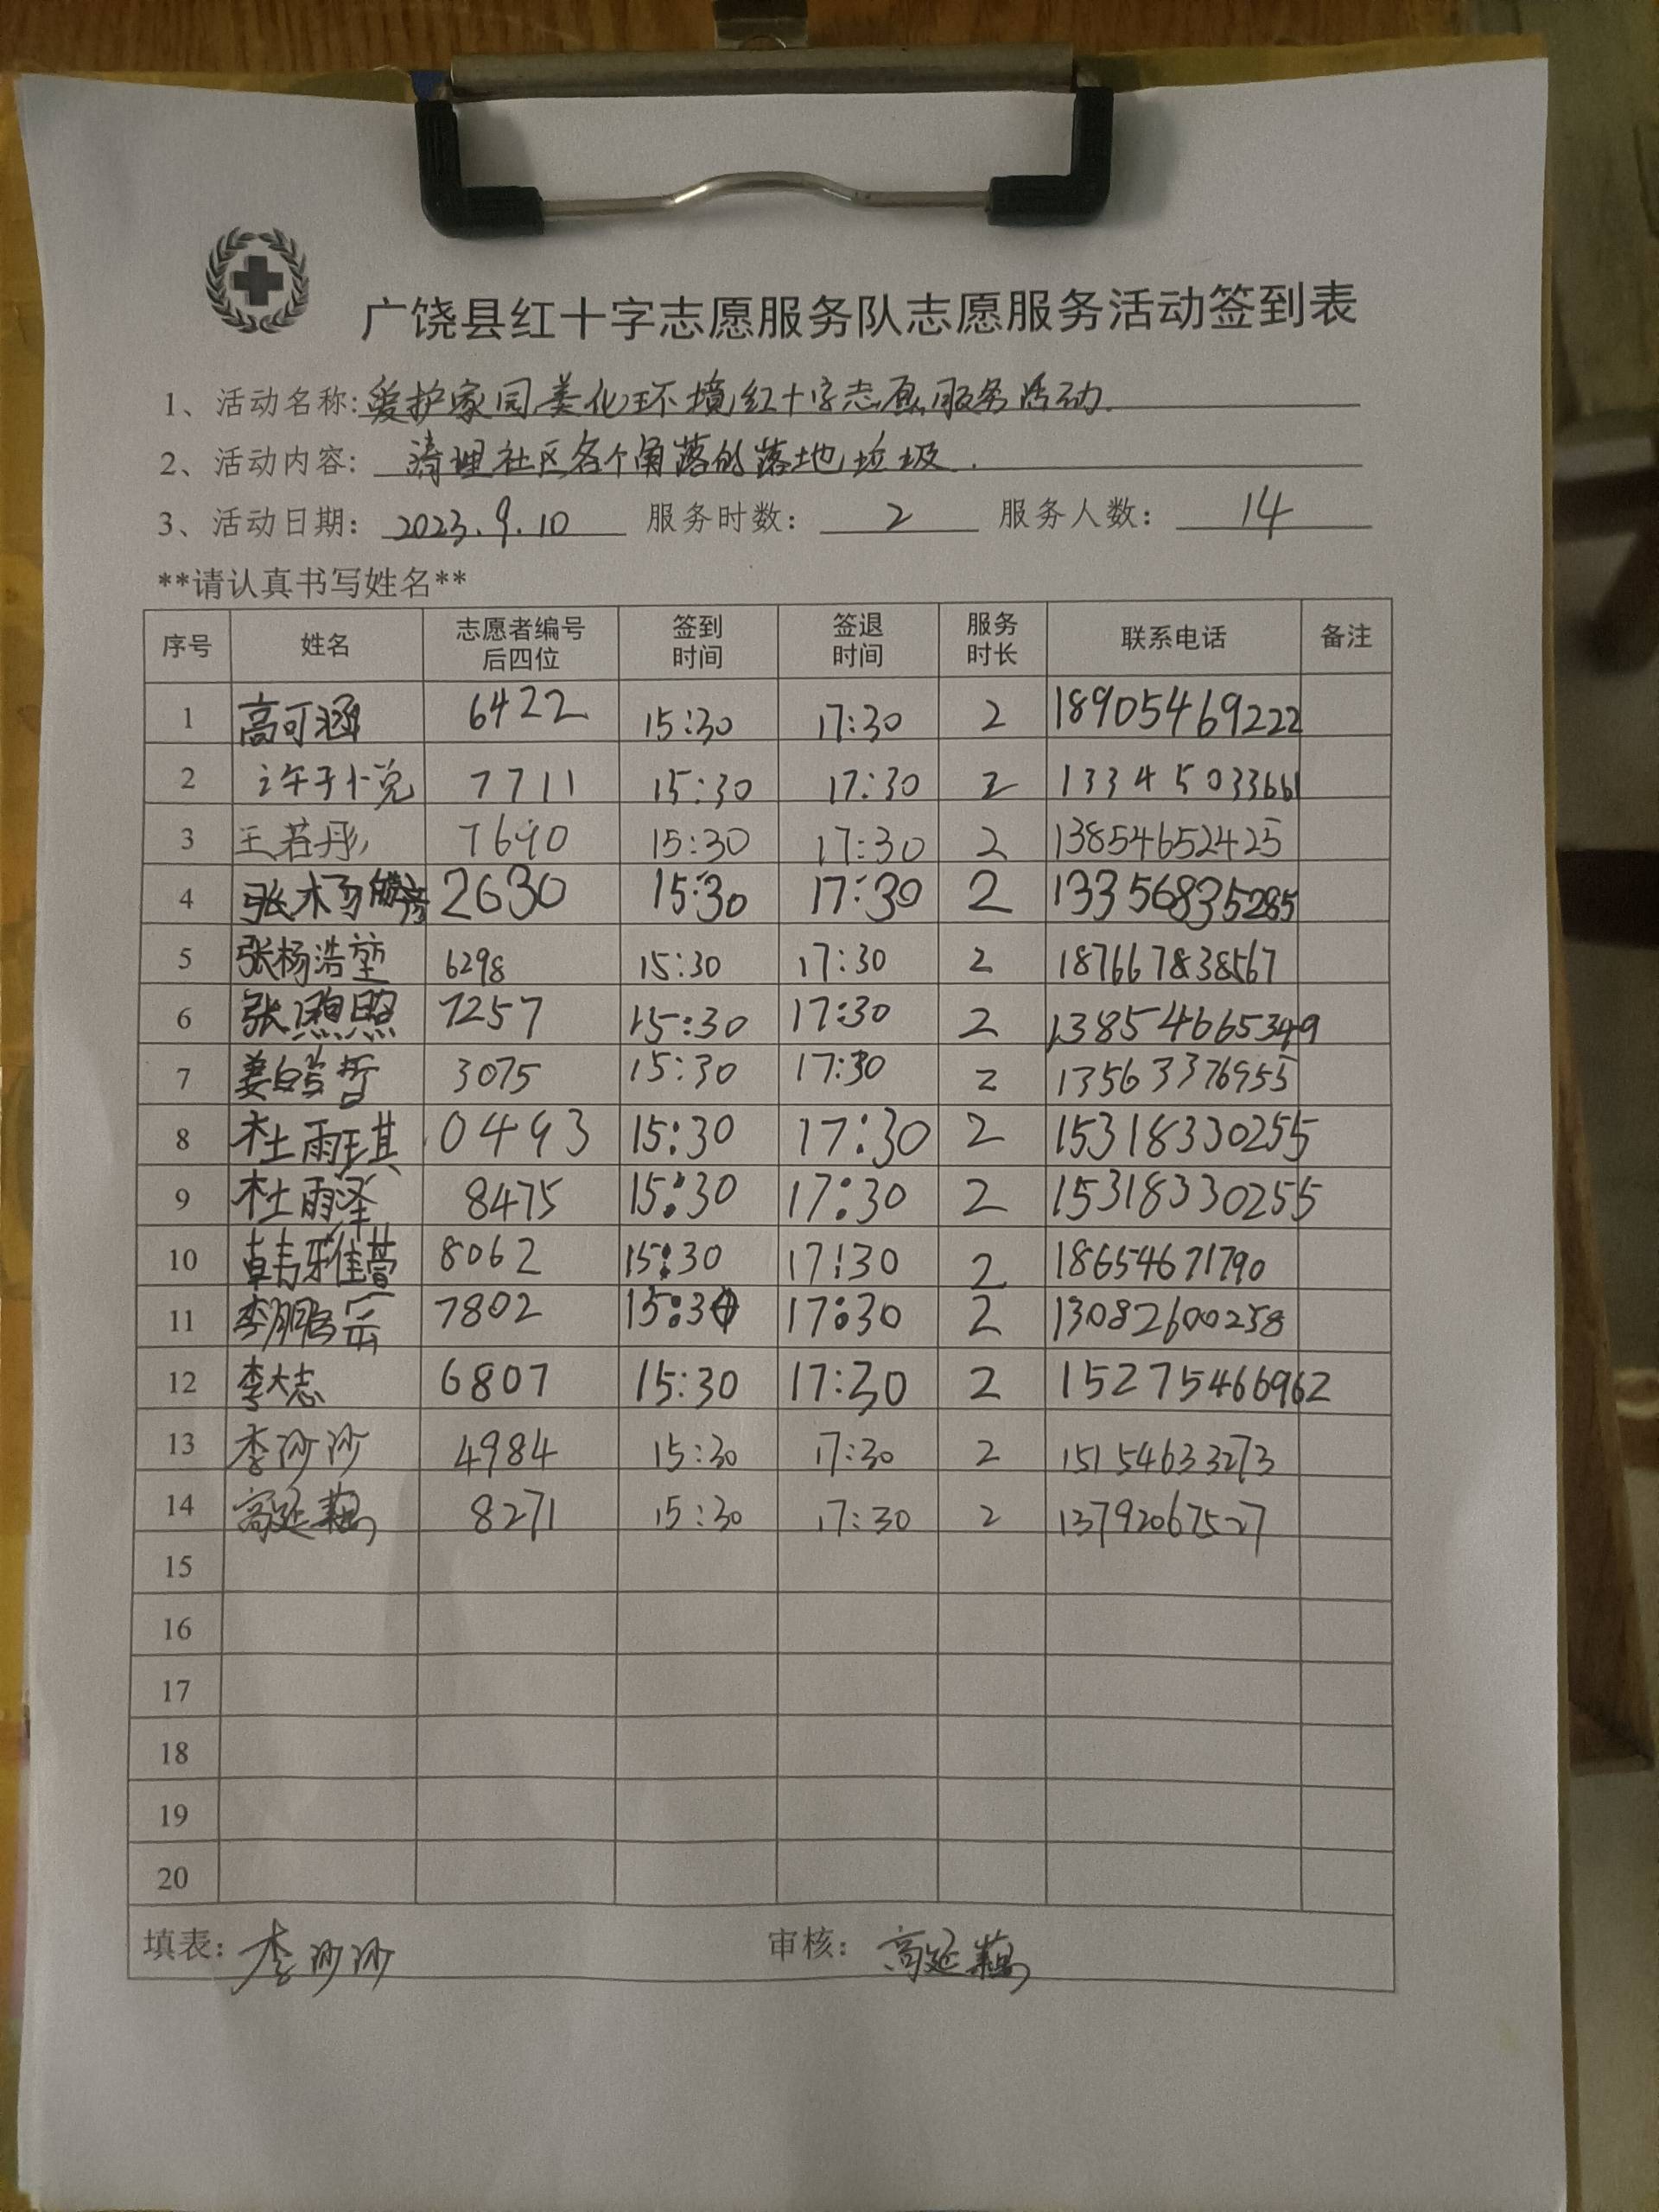 广饶县红十字志愿服务队志愿服务活动签到表
1、活动名称: 爱护家园美化环境红十字志愿服务活动.
2、活动内容: 清理社区各个角落的落地垃圾.
3、活动日期: 2023.9.10 服务时数: 2 服务人数: 14
**请认真书写姓名**
序号 姓名 志愿者编号后四位 签到时间 签退时间 服务时长 联系电话 备注
1 高可涵 6422 15:30 17:30 2 18905469222
2 许于悦 7711 15:30 17:30 2 13345033661
3 王若彤 7690 15:30 17:30 2 13854652425
4 张杨 2630 15:30 17:30 2 13356835285
5 张杨浩堃 6298 15:30 17:30 2 187667838567
6 张熙照 7257 15:30 17:30 2 13854665349
7 姜皓哲 3075 15:30 17:30 2 13563376955
8 杜雨琪 0493 15:30 17:30 2 15318330255
9 杜雨泽 8475 15:30 17:30 2 15318330255
10 韩雅萱 8062 15:30 17:30 2 18654671790
11 李鹏岳 7802 15:30 17:30 2 13082600258
12 李大志 6807 15:30 17:30 2 15275466962
13 李沙沙 4984 15:30 17:30 2 15154633273
14 高延 8271 15:30 17:30 2 13792067527
15
16
17
18
19
20
填表: 李沙沙 审核: 高延